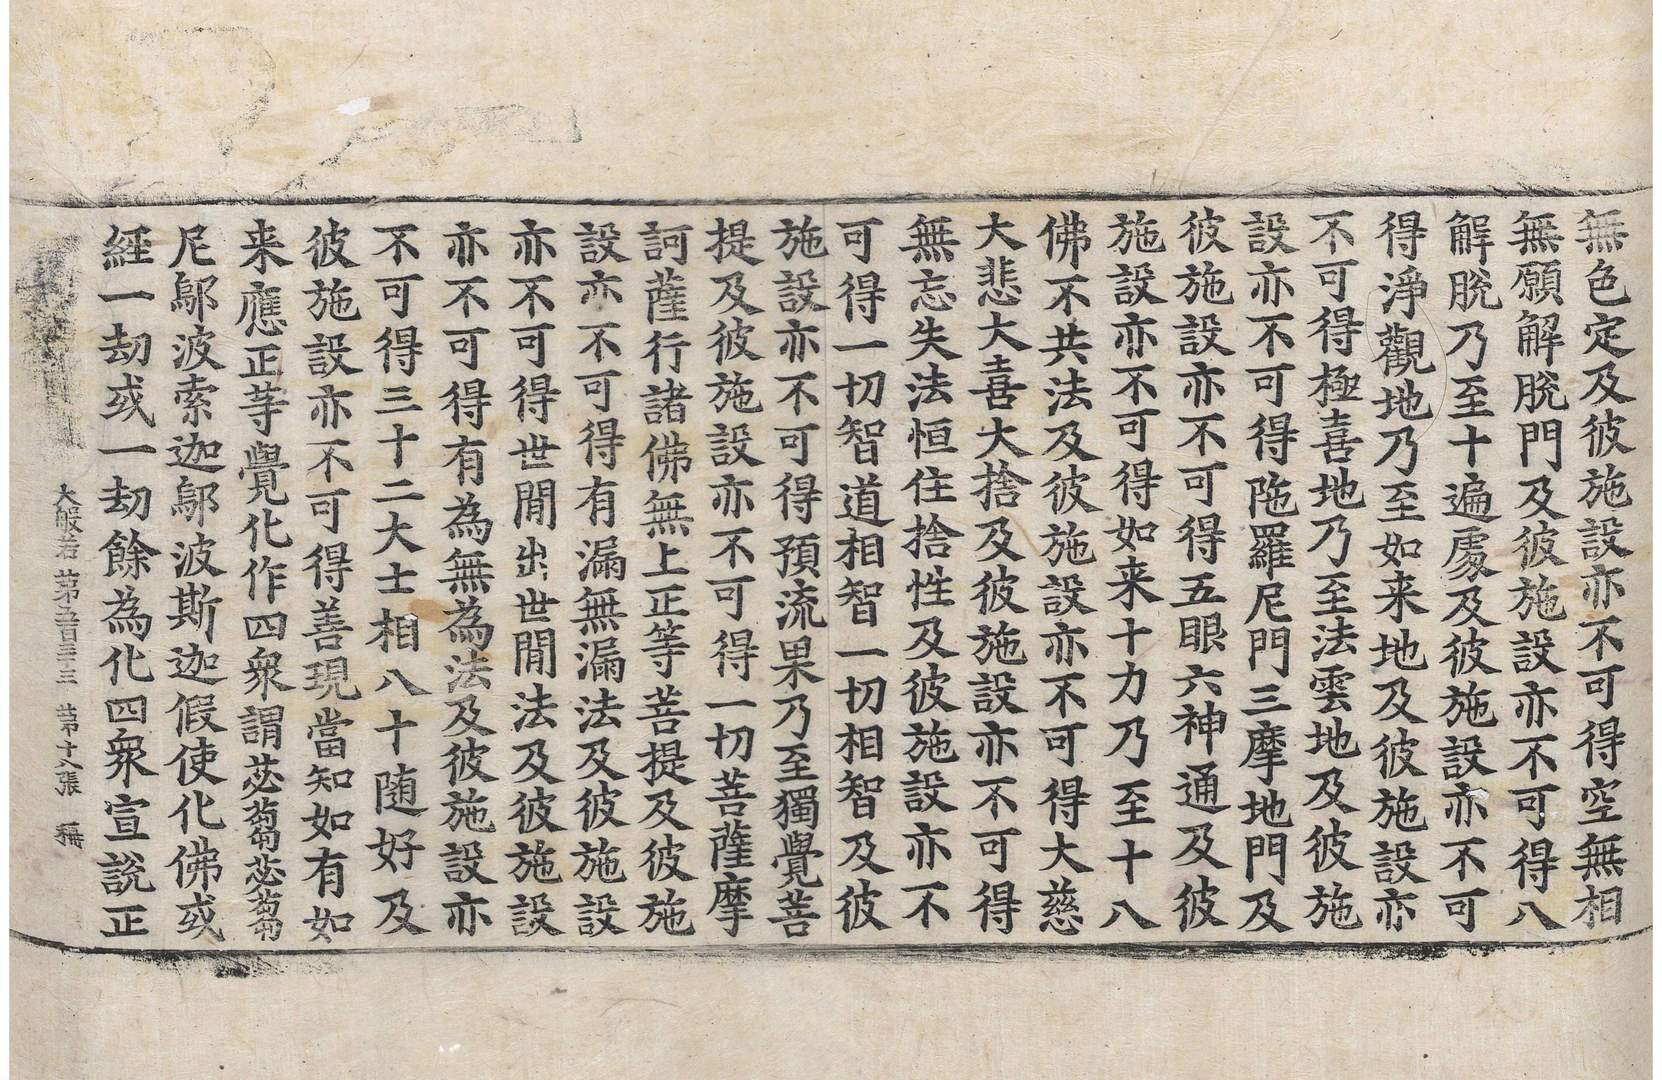 無色定及彼施設亦不可得空無相
無願解脫門及彼施設亦不可得八
解脫乃至十遍處及彼施設亦不可
得淨觀地乃至如来地及彼施設亦
不可得極喜地乃至法雲地及彼施
設亦不可得陁羅尼門三摩地門及
彼施設亦不可得五眼六神通及彼
施設亦不可得如来十力乃至十八
佛不共法及彼施設亦不可得大慈
大悲大喜大捨及彼施設亦不可得
無忘失法恒住捨性及彼施設亦不
可得一切智道相智一切相智及彼
施設亦不可得預流果乃至獨覺菩
提及彼施設亦不可得一切菩薩摩
訶薩行諸佛無上正等菩提及彼施
設亦不可得有漏無漏法及彼施設
亦不可得世間出世間法及彼施設
亦不可得有為無為法及彼施設亦
不可得三十二大士相八十随好及
彼施設亦不可得善現當知如有如
来應正等覺化作四衆謂苾蒭苾蒭
尼鄔波索迦鄔波斯迦假使化佛或
經一劫或一劫餘為化四衆宣說正
大般若 苐五百三十三 苐十八張